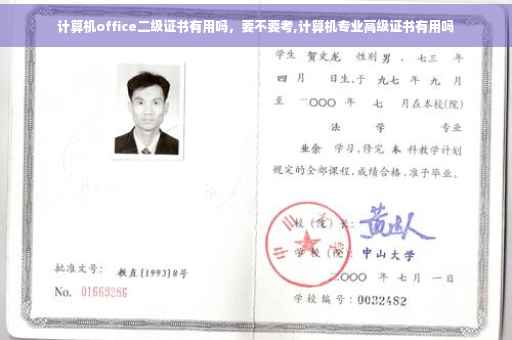 计算机office二级证书有用吗，要不要考,计算机专业高级证书有用吗
学生 贺文龙 性别 男 、七三 年
四 月 日生,于 九七 年 九 月
至 二〇〇〇 年 七 月在本校(院)
法 学 专业
业余 学习,修完 本 科教学计划
规定的全部课程,成绩合格,准予毕业。
校（院）长:
学校（院）: 中山大学
二〇〇〇 年 七 月 一 日
学校编号: 0032482
批准文号: 教直[1993]8号
No. 01669286